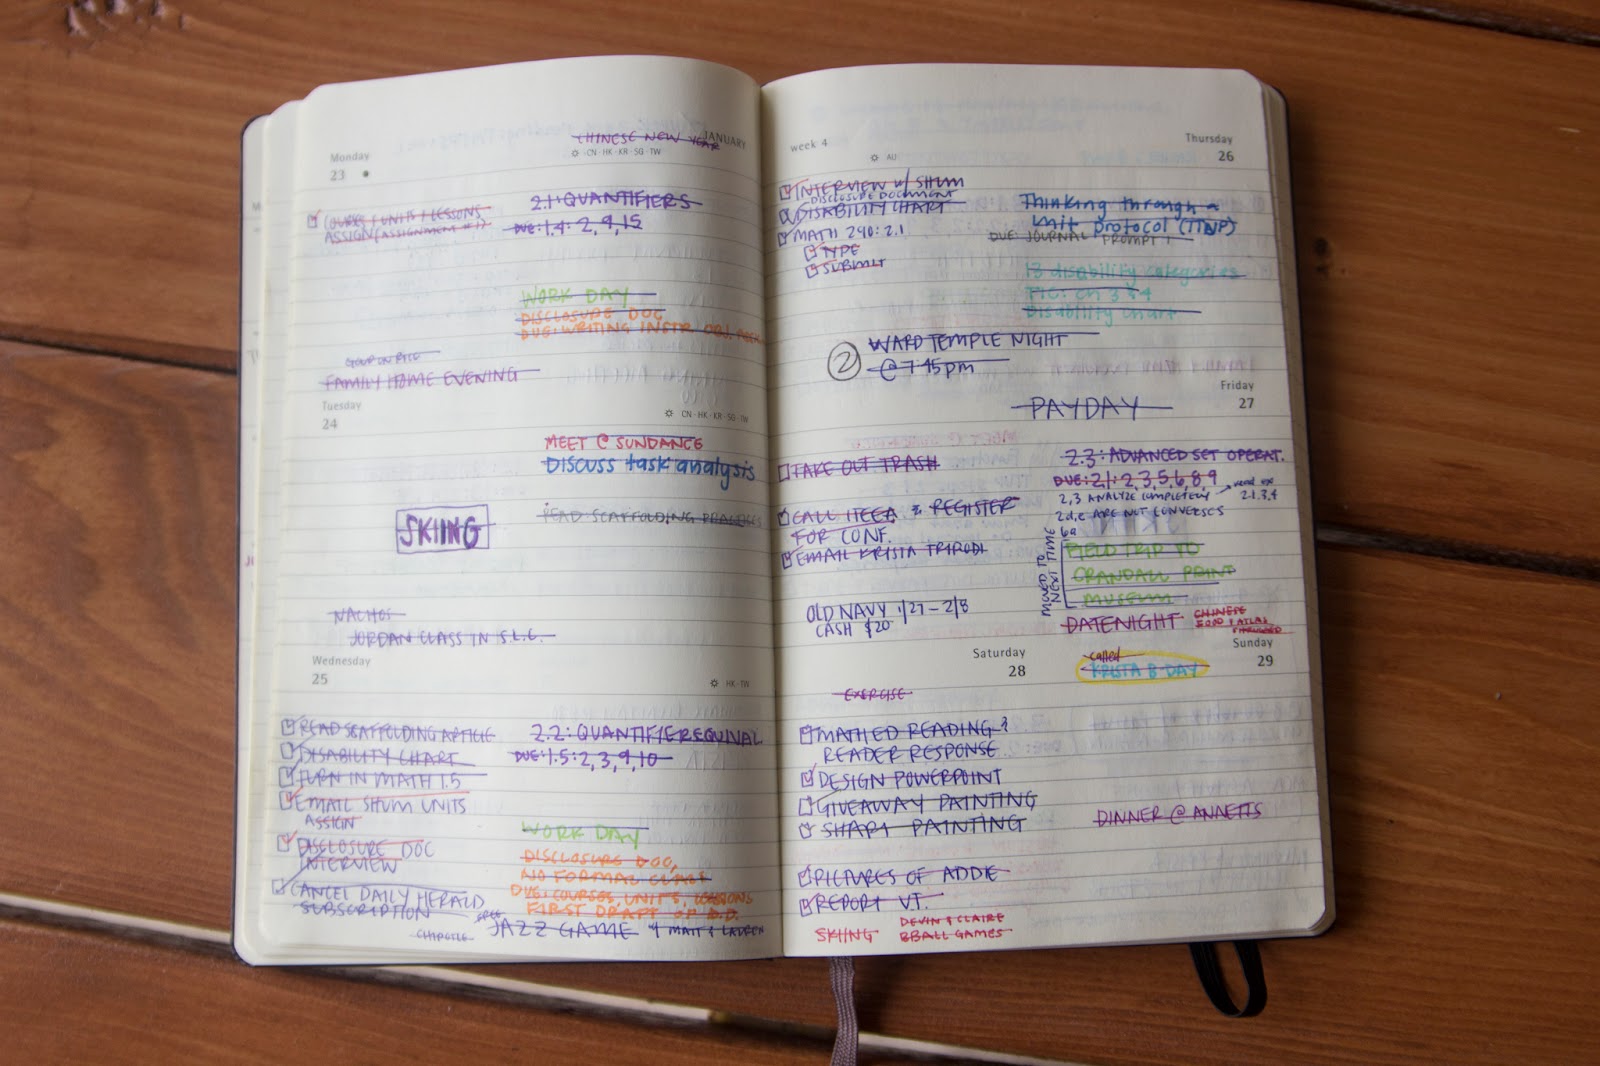 CHINESE NEW YEAR
JANUARY
Monday
CN · HK · KR · SG · TW
23
COURSES / UNITS / LESSONS
ASSIGN (ASSIGNMENT #1)
2.1: QUANTIFIERS
DUE: 1.4: 2, 9, 15
WORK DAY
DISCLOSURE DOC
DUE: WRITING INSTR. OBJ.
FAMILY HOME EVENING
Tuesday
24
CN · HK · KR · SG · TW
MEET @ SUNDANCE
DISCUSS task analysis
READ SCAFFOLDING PRACTICES
SKIING
NACHOS
JORDAN CLASS IN S.L.C.
Wednesday
25
HK · TW
READ SCAFFOLDING ARTICLE
DISABILITY CHART
TURN IN MATH 1.5
EMAIL SHUM UNITS
ASSIGN
DISCLOSURE DOC
INTERVIEW
CANCEL DAILY HERALD
SUBSCRIPTION
2.2: QUANTIFIER EQUIVAL
DUE: 1.5: 2, 3, 9, 10
WORK DAY
DISCLOSURE DOC,
NO FORMAL CLASS
DUE: COURSES, UNITS, LESSONS
FIRST DRAFT OF D.D.
CHIPOTLE
JAZZ GAME w/ MATT & LAUREN
week 4
AU
Thursday
26
INTERVIEW w/ SHUM
DISCLOSURE DOCUMENT
DISABILITY CHART
MATH 290: 2.1
TYPE
SUBMIT
Thinking through a
unit protocol (TTUP)
DUE: JOURNAL PROMPT 1
13 disability categories
Ch 3 & 4
Disability chart
2
WARD TEMPLE NIGHT
@ 7:45pm
Friday
27
PAYDAY
TAKE OUT TRASH
CALL ITEEA & REGISTER
FOR CONF.
EMAIL KRISTA TRIPODI
OLD NAVY 1/27 - 2/8
CASH $20
2.3: ADVANCED SET OPERAT.
DUE: 2.1: 2, 3, 5, 6, 8, 9
2, 3 ANALYZE COMPLETELY
2.1.3,4
2d, e ARE NOT CONVERSES
6a
MOVED TO
NEXT TIME
FIELD TRIP TO
CRANDALL PRINT
MUSEUM
DATENIGHT
CHINESE
FOOD &
Saturday
28
EXERCISE
MATH ED READING &
READER RESPONSE
DESIGN POWERPOINT
GIVEAWAY PAINTING
START PAINTING
PICTURES OF ADDIE
REPORT VT.
SKIING
DEVIN & CLAIRE
BBALL GAMES
Sunday
29
called
KRISTA B DAY
DINNER @ ANNETTS